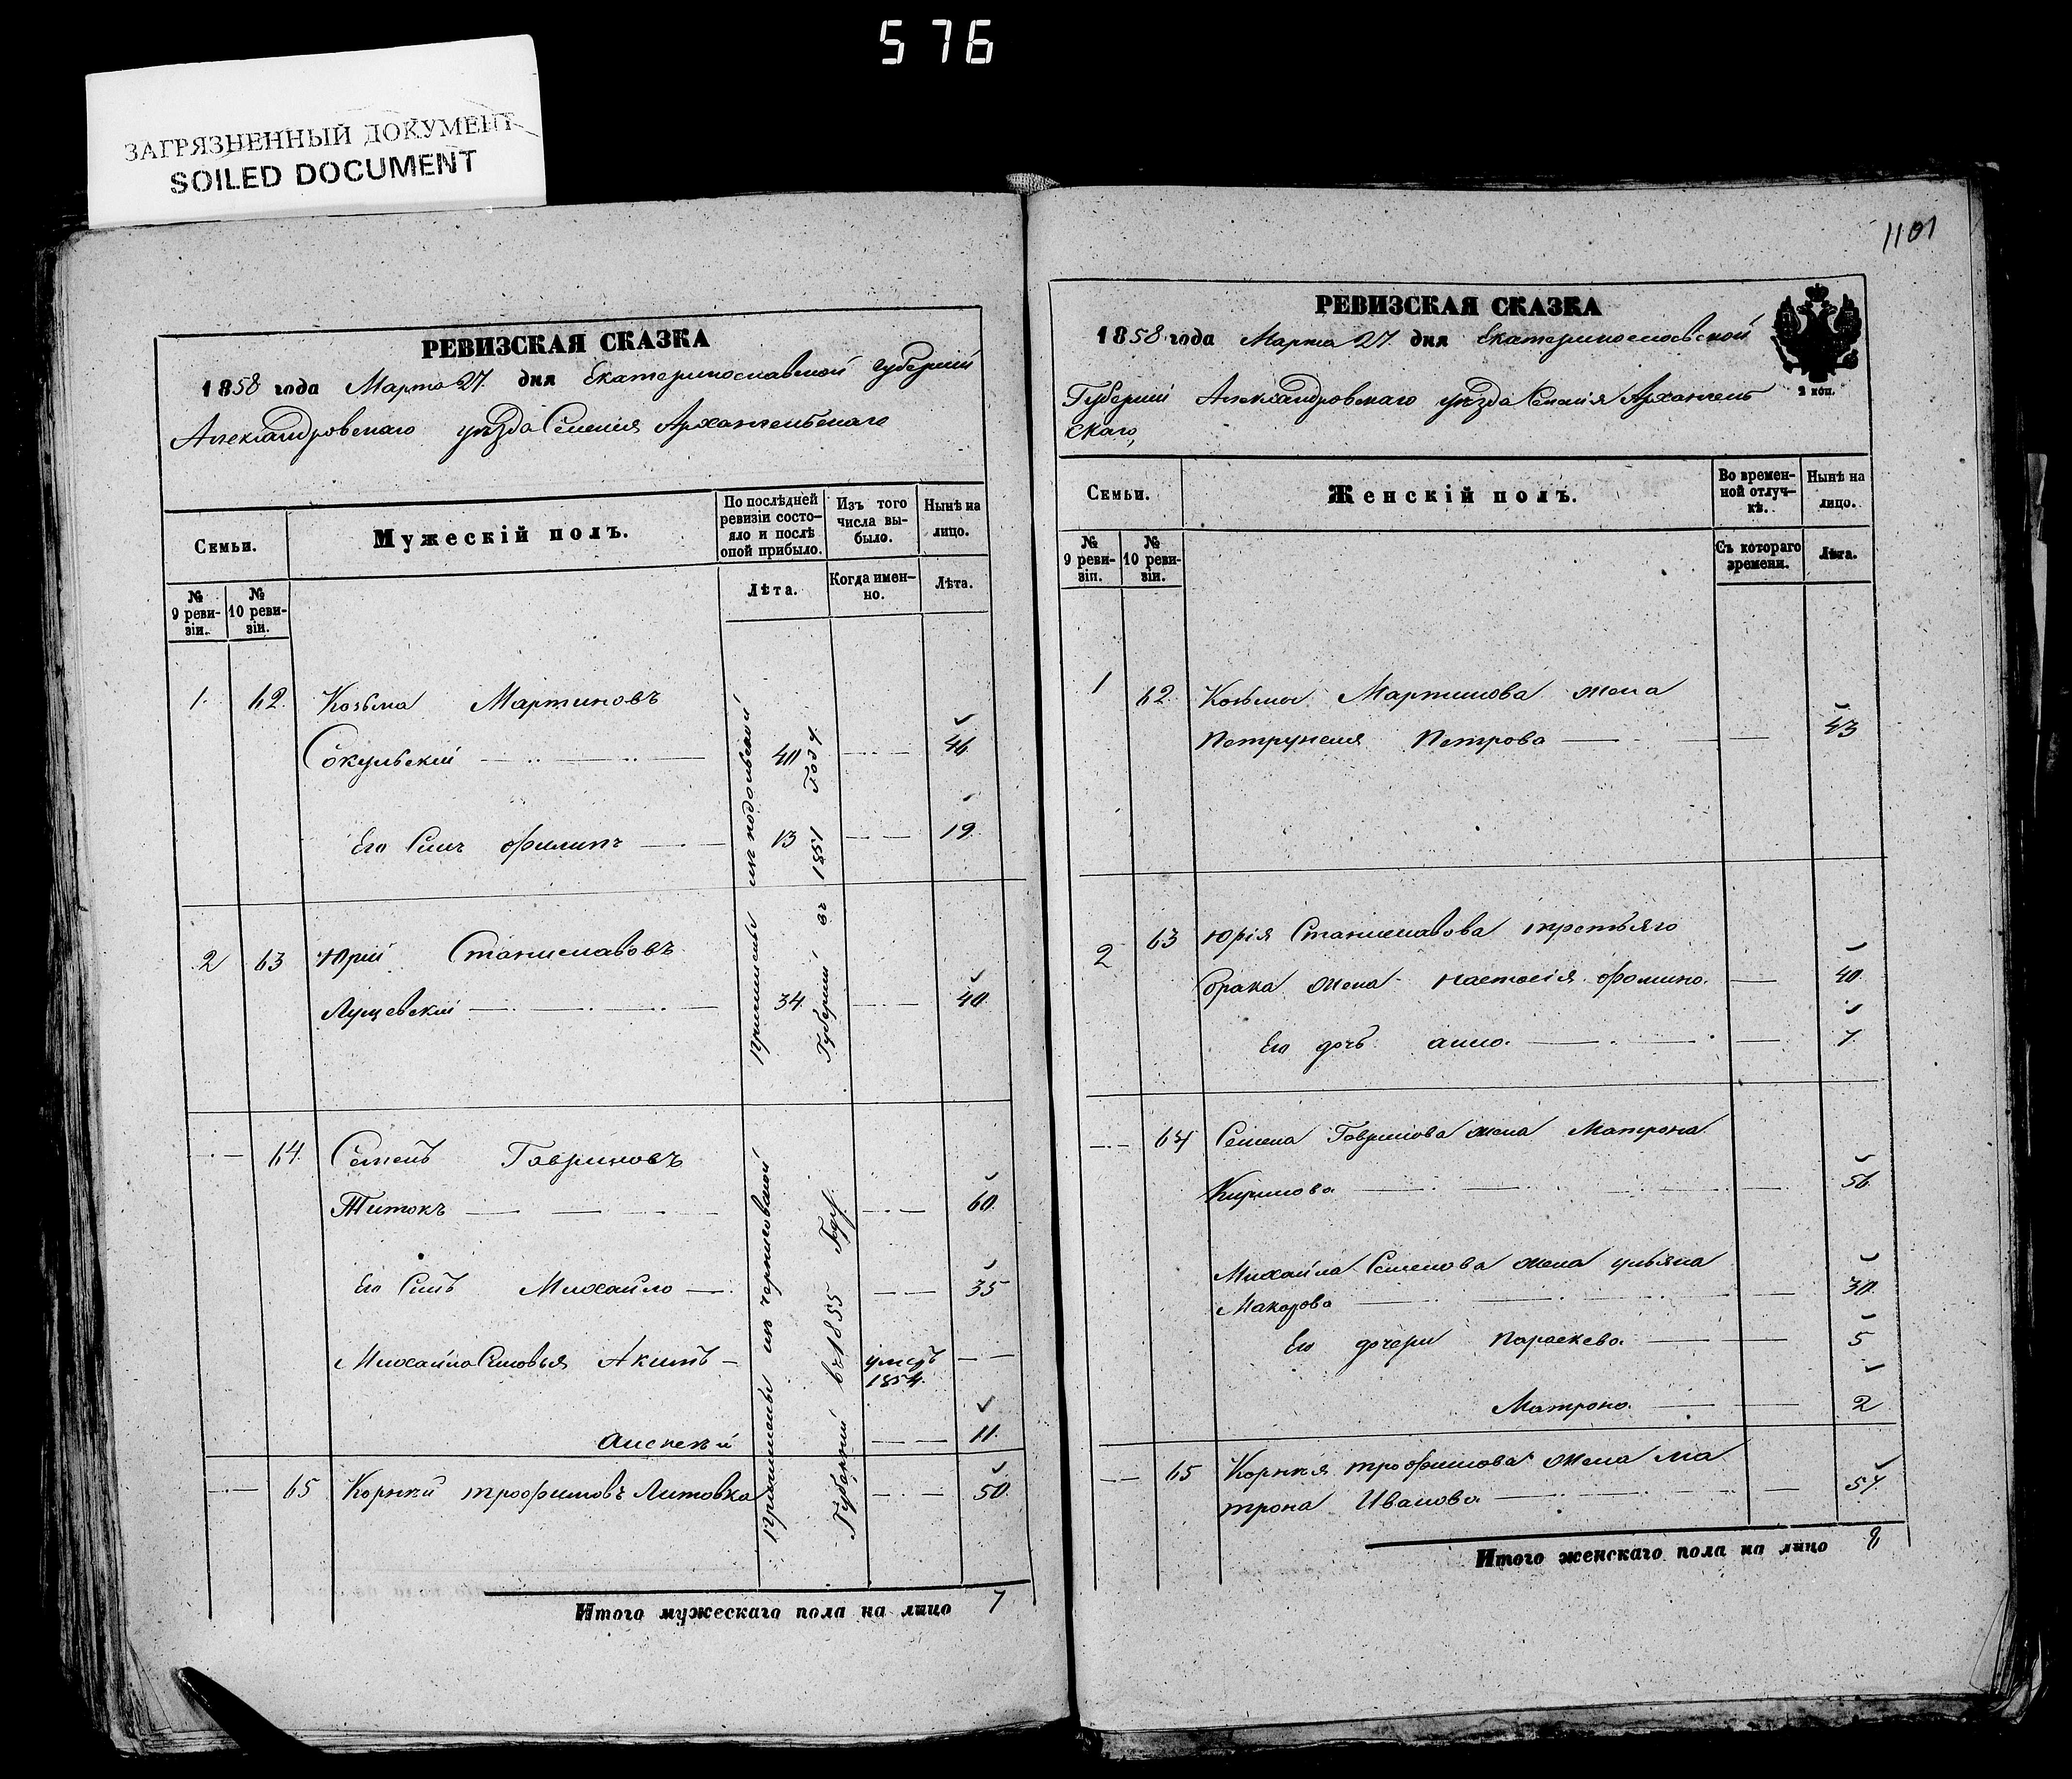 576
ЗАГРЯЗНЕННЫЙ ДОКУМЕНТ
SOILED DOCUMENT
РЕВИЗСКАЯ СКАЗКА
1858 года Марта 27. дня Екатеринославской Губернiи
Александровскаго уѣзда Селенiя Архангельскаго
Семьи.
Мужескiй полъ.
По послѣдней
ревизiи состо-
яло и послѣ
оной прибыло.
Изъ того
числа вы-
было.
Нынѣ на
лицо.
№
9 реви-
зiи.
№
10 реви-
зiи.
Лѣта.
Когда имен-
но.
Лѣта.
1. 62. Козьма Мартиновъ
Сокульскiй 40 46
Его Сынъ Филипъ 13 19
2 63 Юрiй Станиславовъ
Лущевскiй 34 40
Причислены изъ подольской
Губернiи въ 1851 Году.
64. Семенъ Гавриловъ
Титокъ 60.
Его Сынъ Михайло 35
Михайла Сыновья Акимъ умеръ
1854.
Алексѣй 11.
65 Корнѣй трофимовъ Литовка 50.
Причислены изъ черниговской
Губернiи въ 1855 Году.
Итого мужескаго пола на лицо 7
1101
РЕВИЗСКАЯ СКАЗКА
1858 года Марта 27. дня Екатеринославской
2 коп.
Губернiи Александровскаго уѣзда Селенiя Архангель
скаго,
Семьи.
Женскiй полъ.
Во времен-
ной отлуч-
кѣ.
Нынѣ на
лицо.
№
9 реви-
зiи.
№
10 реви-
зiи.
Съ котораго
времени.
Лѣта.
1 62. Козьмы Мартинова жена
Петрунеля Петрова 43
2 63 Юрiя Станиславова третьяго
брака жена Настасiя Фомина. 40.
Его дочь анна. 7
64 Семена Гаврилова жена Матрона
Кирилова 56.
Михайла Семенова жена ульяна
Макарова 30.
Его дочери Параскева. 5
Матрона. 2
65 Корнѣя трофимова жена Ма
трона Иванова. 54.
Итого женскаго пола на лицо 8